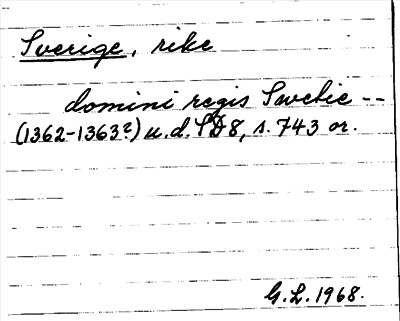 Sverige, rike
domini regis Swecie --
(1362-1363?) u.d. SD8, s. 743 or.
G.L. 1968.